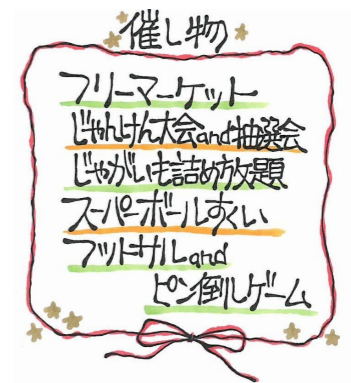 催し物
フリーマーケット
じゃんけん大会and抽選会
じゃがいも詰め放題
スーパーボールすくい
フットサルand
ピン倒しゲーム